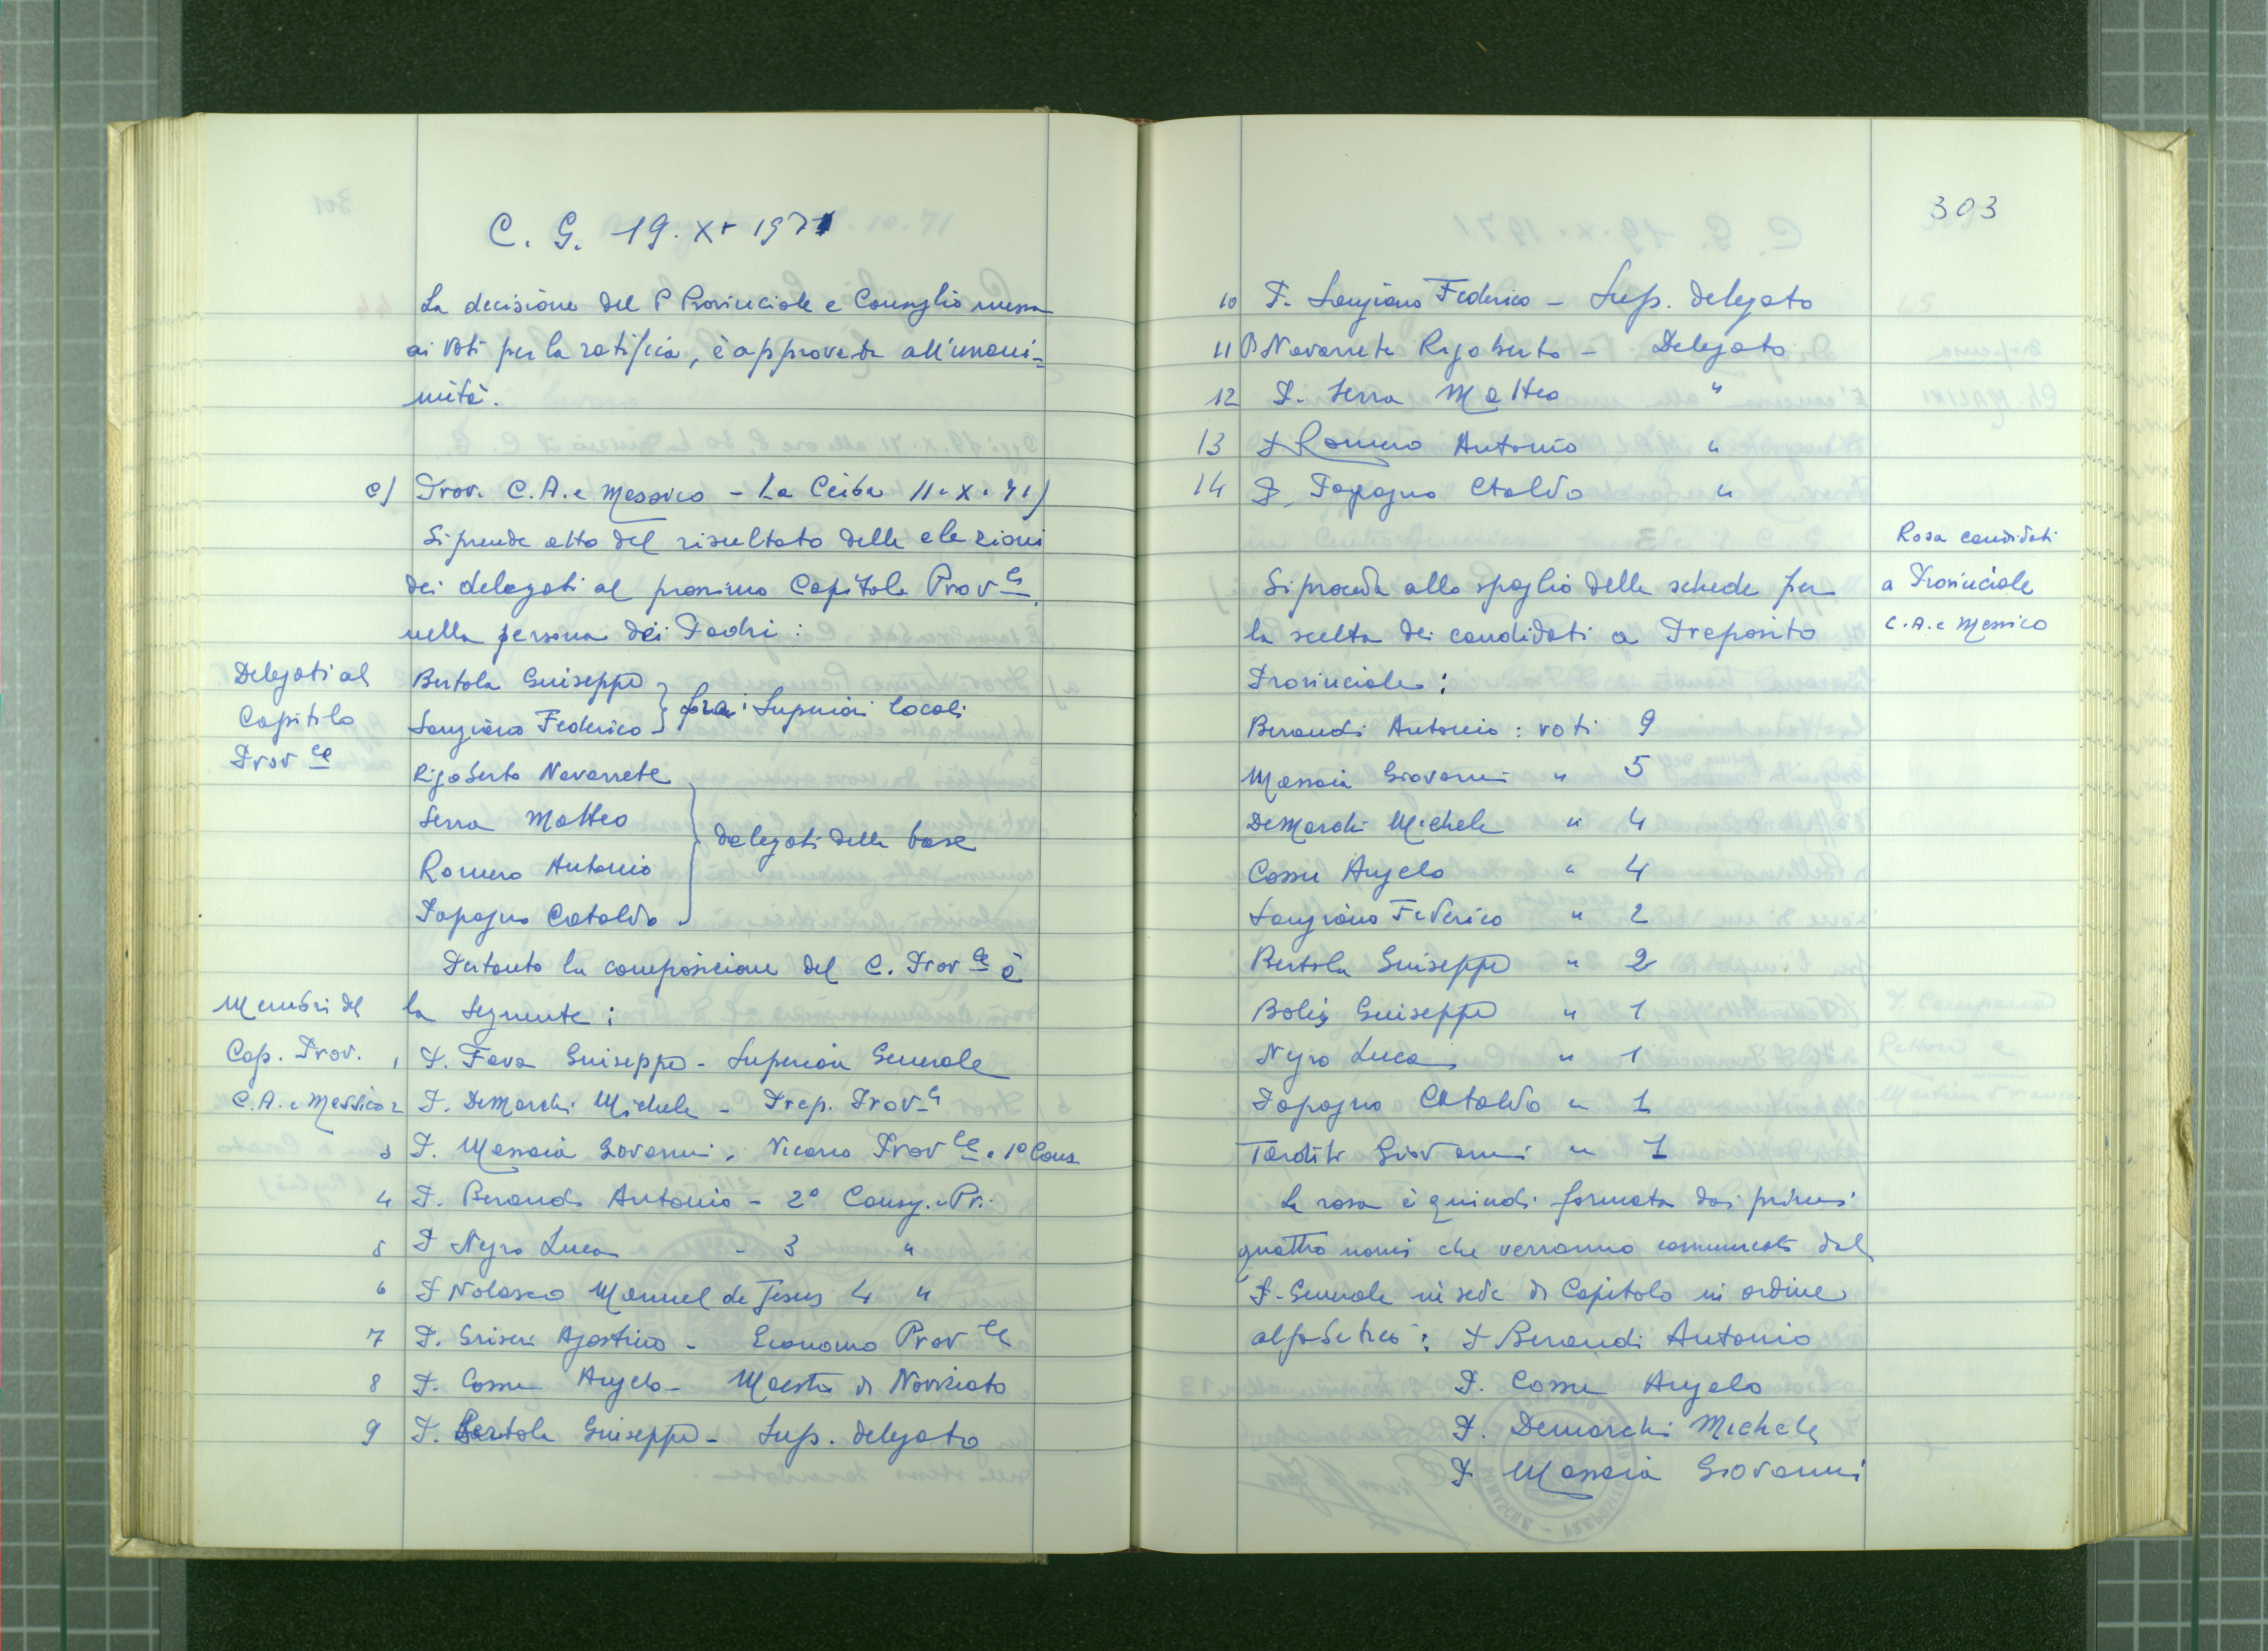 C. G. 19. X. 1971
La decisione del P Provinciale e Consiglio messa
ai voti per la ratifica, è approvata all'unani=
mità.
c) Prov. C.A. e Messico - La Ceiba 11. X. 71)
Si prende atto del risultato delle elezioni
dei delegati al prossimo Capitolo Prov le
nella persona dei Padri:
Delegati al
Capitolo
Prov le
Bertola Giuseppe
Sangiano Federico
fra i Superiori locali
Rigoberto Navarrete
Serra Matteo
Romero Antonio
Papagno Cataldo
delegati della base
Pertanto la composizione del C. Prov le è
la seguente:
Membri del
Cap. Prov.
C.A. e Messico
1 P. Fava Giuseppe - Superiore Generale
2 P. DeMarchi Michele - Prep. Prov le
3 P. Massaia Giovanni, Vicario Prov le e 1º Cons
4 P. Beraudi Antonio - 2º Consig. Pr.
5 P Negro Luca - 3 "
6 P Nolasco Manuel de Jesus 4 "
7 P. Griseri Agostino - Economo Prov le
8 P. Cossu Angelo - Maestro di Noviziato
9 P. Bertola Giuseppe - Sup. delegato
303
10 P. Sangiano Federico - Sup. delegato
11 P Navarrete Rigoberto - Delegato
12 P. Serra Matteo "
13 P Romero Antonio "
14 P. Papagno Ctaldo "
Rosa candidati
a Provinciale
C.A. e Messico
Si proceda allo spoglio delle schede per
la scelta dei candidati a Preposito
Provinciale:
Beraudi Antonio: voti 9
Massaia Giovanni " 5
DeMarchi Michele " 4
Cossu Angelo " 4
Sangiano Federico " 2
Bertola Giuseppe " 2
Bolis Giuseppe " 1
Negro Luca " 1
Papagno Cataldo " 1
Tarditi Giovanni " 1
La rosa è quindi formata dai primi
quattro nomi che verranno comunicati dal
P. Generale in sede di Capitolo in ordine
alfabetico: P Beraudi Antonio
P. Cossu Angelo
P. Demarchi Michele
P Massaia Giovanni